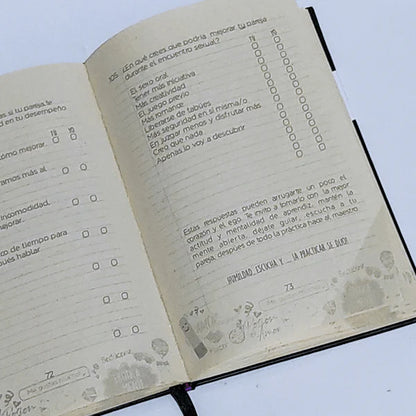 as si tu pareja te
d en tu desempeño
TÚ YO
ómo mejorar.
amos más al
incomodidad,
ejorar.
o de tiempo para
ués hablar.
72
105. ¿En qué crees que podría mejorar tu pareja
durante el encuentro sexual?
TÚ YO
El sexo oral
Tener más iniciativa
Más creatividad
El juego previo
Más romance
Liberarse de tabúes
Más seguridad en sí misma/o
En juzgar menos y disfrutar más
Creo que nada
Apenas lo voy a descubrir
Estas respuestas pueden arrugarte un poco el
corazón y el ego. Te invito a tomarlo con la mejor
actitud y mentalidad de aprendiz, mantén la
mente abierta, déjate guiar, escucha a tu
pareja, después de todo la práctica hace al maestro.
¡HUMILDAD, ESCUCHA Y ... ¡A PRACTICAR SE DIJO!
73